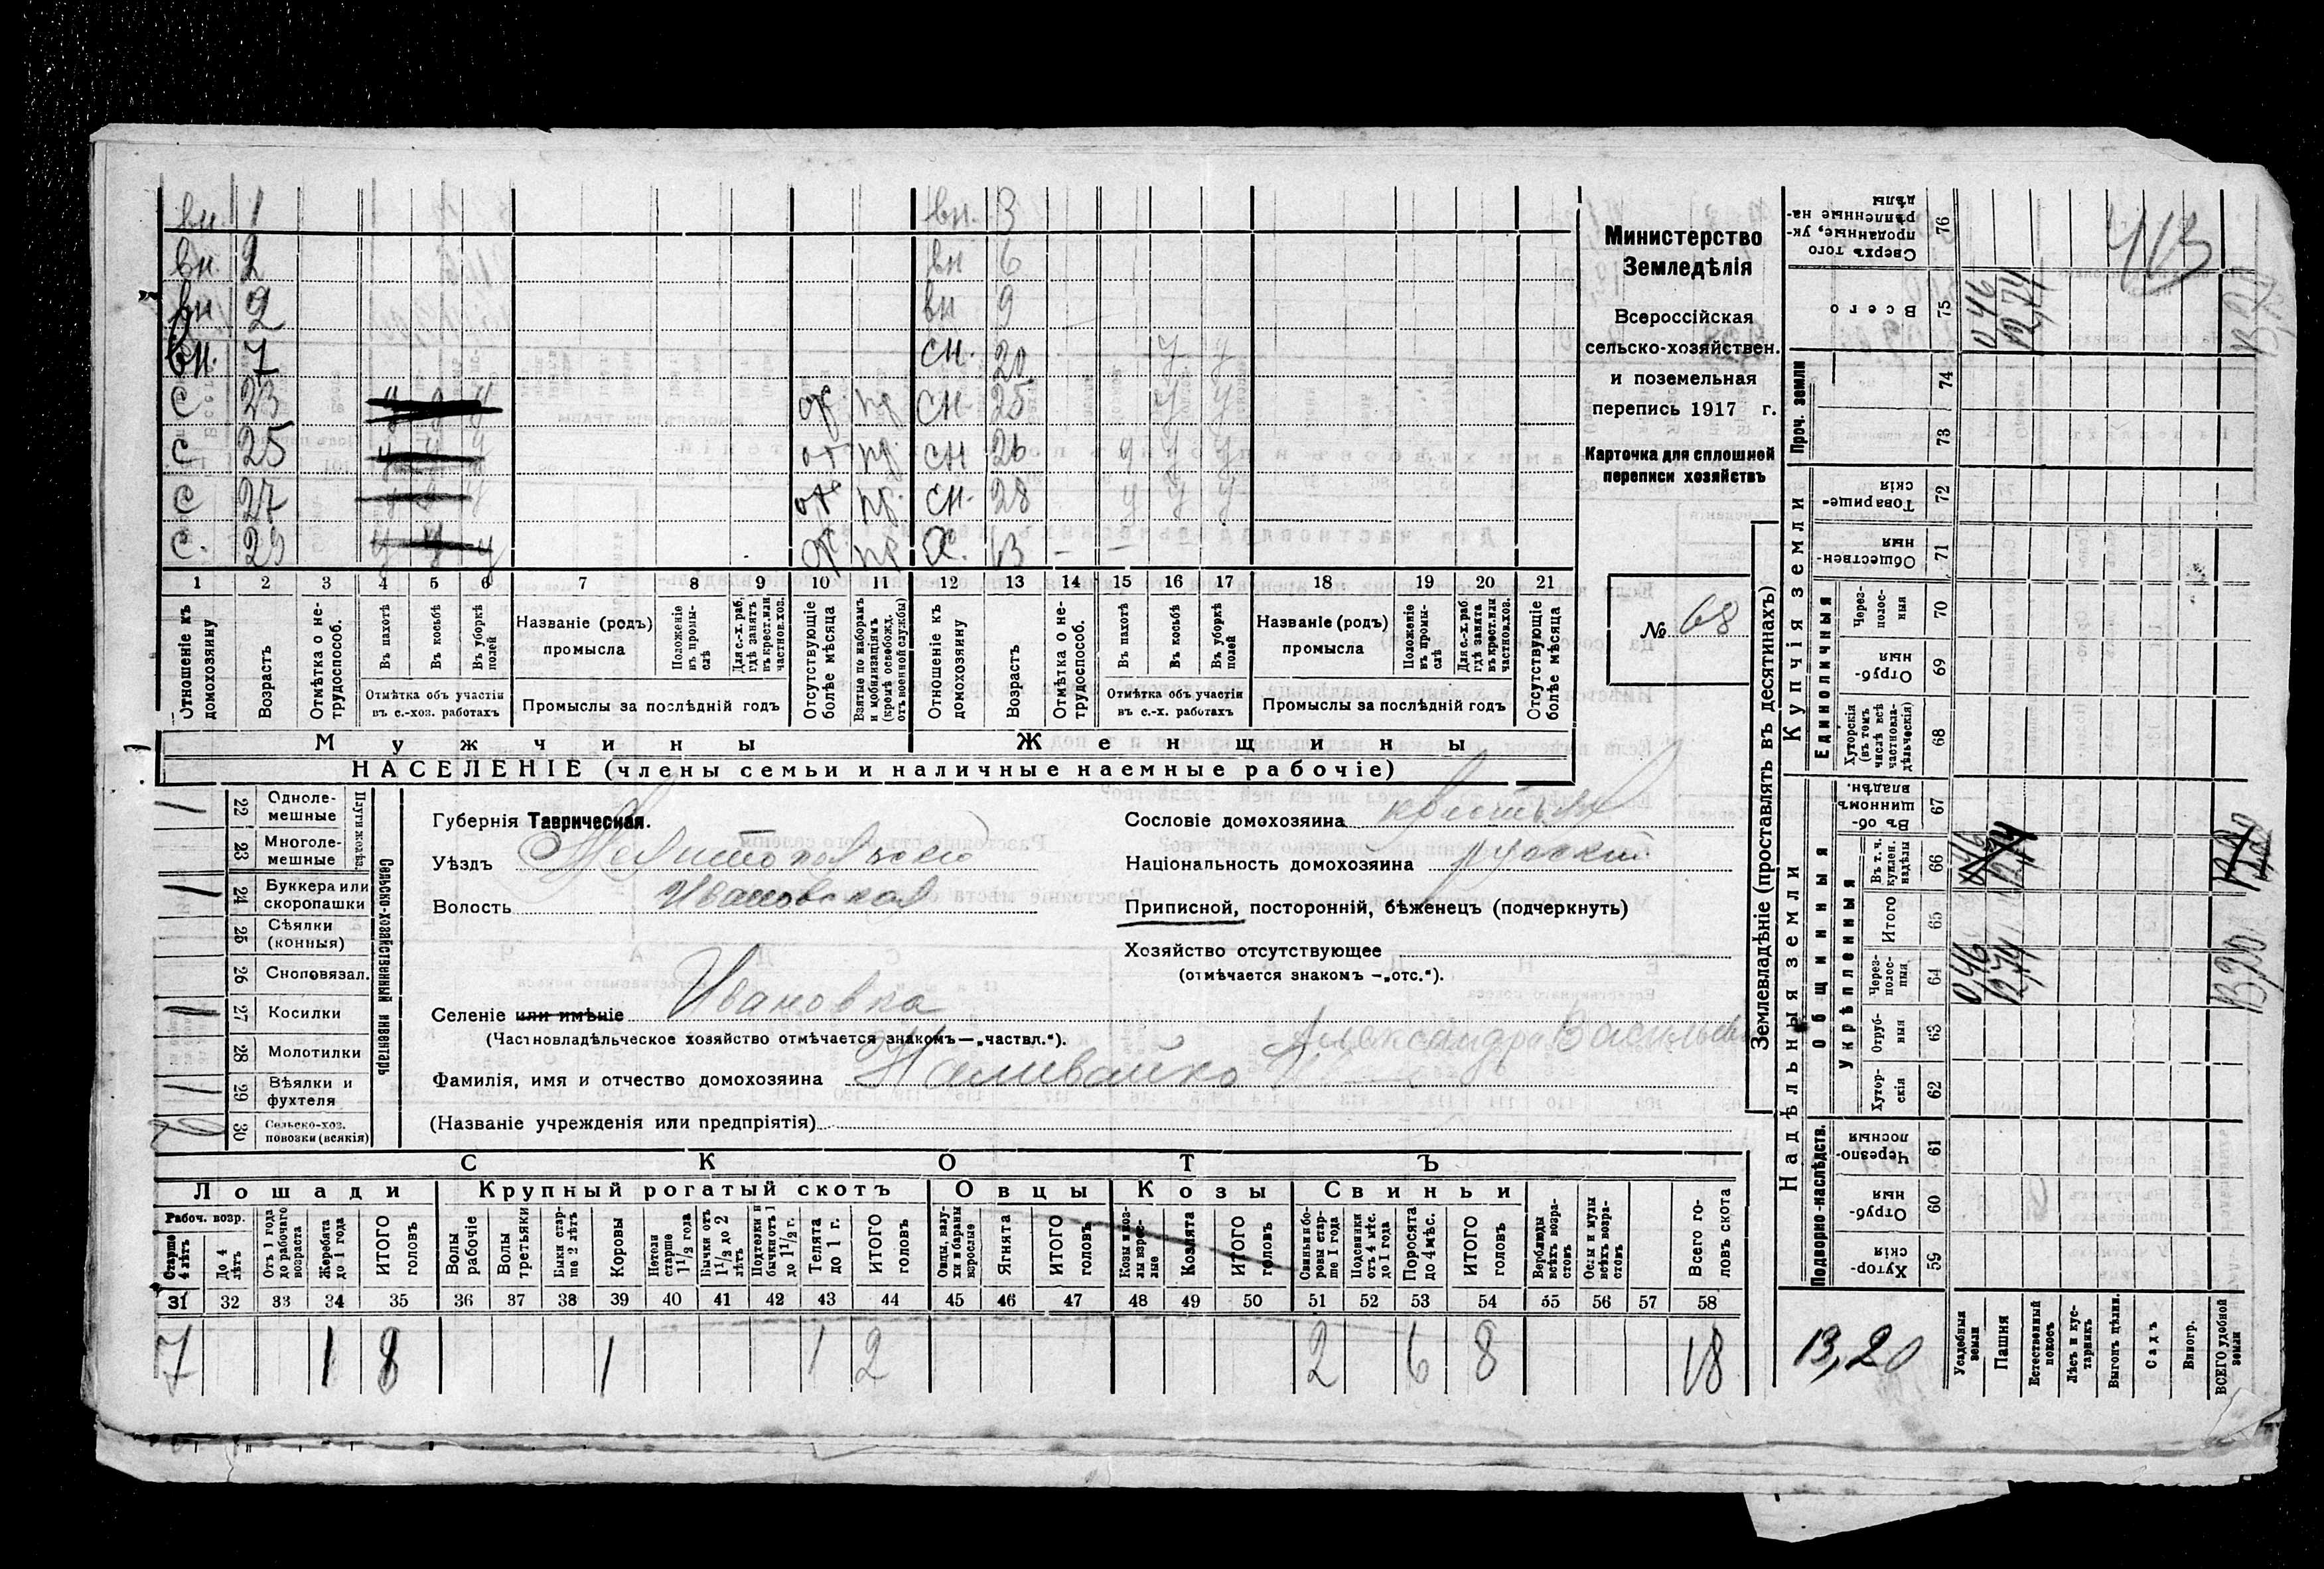 вн. 1 вн. 3
вн. 2 вн 6
вн 2 вн 9
вн. 7 сн. 20 у у
с 23 у у у от пр. сн. 25 у у
с 25 у у у от пр. сн 26 у у у
с 27 у у у от пр. сн. 28 у у у
с. 29 у у у от пр х. 63 – –
1 2 3 4 5 6 7 8 9 10 11 12 13 14 15 16 17 18 19 20 21
Отношеніе къ домохозяину
Возрастъ
Отмѣтка о нетрудоспособ.
Въ пахотѣ
Въ косьбѣ
Въ уборкѣ полей
Отмѣтка объ участіи въ с.-хоз. работахъ
Названіе (родъ) промысла
Положеніе въ промыслѣ
Для с.-х. раб. гдѣ занятъ въ крест. или частнов. хоз.
Промыслы за послѣдній годъ
Отсутствующіе болѣе мѣсяца
Взятые по наборамъ и мобилизаціямъ (кромѣ освобожд. отъ военной службы)
Отношеніе къ домохозяину
Возрастъ
Отмѣтка о нетрудоспособ.
Въ пахотѣ
Въ косьбѣ
Въ уборкѣ полей
Отмѣтка объ участіи въ с.-х. работахъ
Названіе (родъ) промысла
Положеніе въ промыслѣ
Для с.-х. раб гдѣ занята въ крест. или частнов. хоз.
Промыслы за послѣдній годъ
Отсутствующіе болѣе мѣсяца
Мужчины Женщины
НАСЕЛЕНІЕ (члены семьи и наличные наемные рабочіе)
Министерство
Земледѣлія
Всероссійская
сельско-хозяйствен.
и поземельная
перепись 1917 г.
Карточка для сплошной
переписи хозяйствъ
№ 68
Сельско-хозяйственный инвентарь
Плуги желѣз.
1 22 Однолемешные
23 Многолемешные
1 24 Буккера или скоропашки
25 Сѣялки (конныя)
26 Сноповязал.
1 27 Косилки
28 Молотилки
1 29 Вѣялки и фухтеля
2 30 Сельско-хоз. повозки (всякія)
Губернія Таврическая.
Уѣздъ Мелитопольскій
Волость Ивановская
Селеніе или имѣніе Ивановка
(Частновладѣльческое хозяйство отмѣчается знакомъ—„частвл.“).
Фамилія, имя и отчество домохозяина Наливайко Александра Васильев
(Названіе учрежденія или предпріятія)
Сословіе домохозяина крестьян
Національность домохозяина русскій
Приписной, посторонній, бѣженецъ (подчеркнуть)
Хозяйство отсутствующее
(отмѣчается знакомъ —„отс.“).
СКОТЪ
Лошади Крупный рогатый скотъ Овцы Козы Свиньи
Рабоч. возр.
Старше 4 лѣтъ
До 4 лѣтъ
Отъ 1 года до рабочаго возраста
Жеребята до 1 года
ИТОГО головъ
Волы рабочіе
Волы третьяки
Быки старше 2 лѣтъ
Коровы
Нетели старше 1 1/2 года
Бычки отъ 1 1/2 до 2 лѣтъ
Подтелки и бычки отъ 1 до 1 1/2 г.
Телята до 1 г.
ИТОГО головъ
Овцы, валухи и бараны взрослые
Ягнята
ИТОГО головъ
Козы и козлы взрослые
Козлята
ИТОГО головъ
Свиньи и боровы старше 1 года
Подсвинки отъ 4 мѣс. до 1 года
Поросята до 4 мѣс.
ИТОГО головъ
Верблюды всѣхъ возрастовъ
Ослы и мулы всѣхъ возрастовъ
Всего головъ скота
31 32 33 34 35 36 37 38 39 40 41 42 43 44 45 46 47 48 49 50 51 52 53 54 55 56 57 58
7 1 8 1 1 2 2 6 8 18
Землевладѣніе (проставлять въ десятинахъ)
Надѣльныя земли Купчія земли Проч. земли
Подворно-наслѣдств.
Общинныя
Укрѣпленныя
Единоличныя
59 Хуторскія
60 Отрубныя
61 Черезполосныя
62 Хуторскія
63 Отрубныя
64 Черезполосныя 0,46 12,74 13,20
65 Итого
66 Въ т. ч. куплен. надѣлы 0,46 12,74 13,20
67 Въ общинномъ владѣн.
68 Хуторскія (въ томъ числѣ всѣ частновладѣльческія)
69 Отрубныя
70 Черезполосныя
71 Общественныя
72 Товарищескія
73
74
75 Всего 0,46 12,74 13,20
76 Сверхъ того проданные, укрѣпленные надѣлы
413
13,20
Усадебныя земли
Пашня
Естественный покосъ
Лѣсъ и кустарникъ
Выгонъ цѣлин.
Садъ
Виногр.
ВСЕГО удобной земли